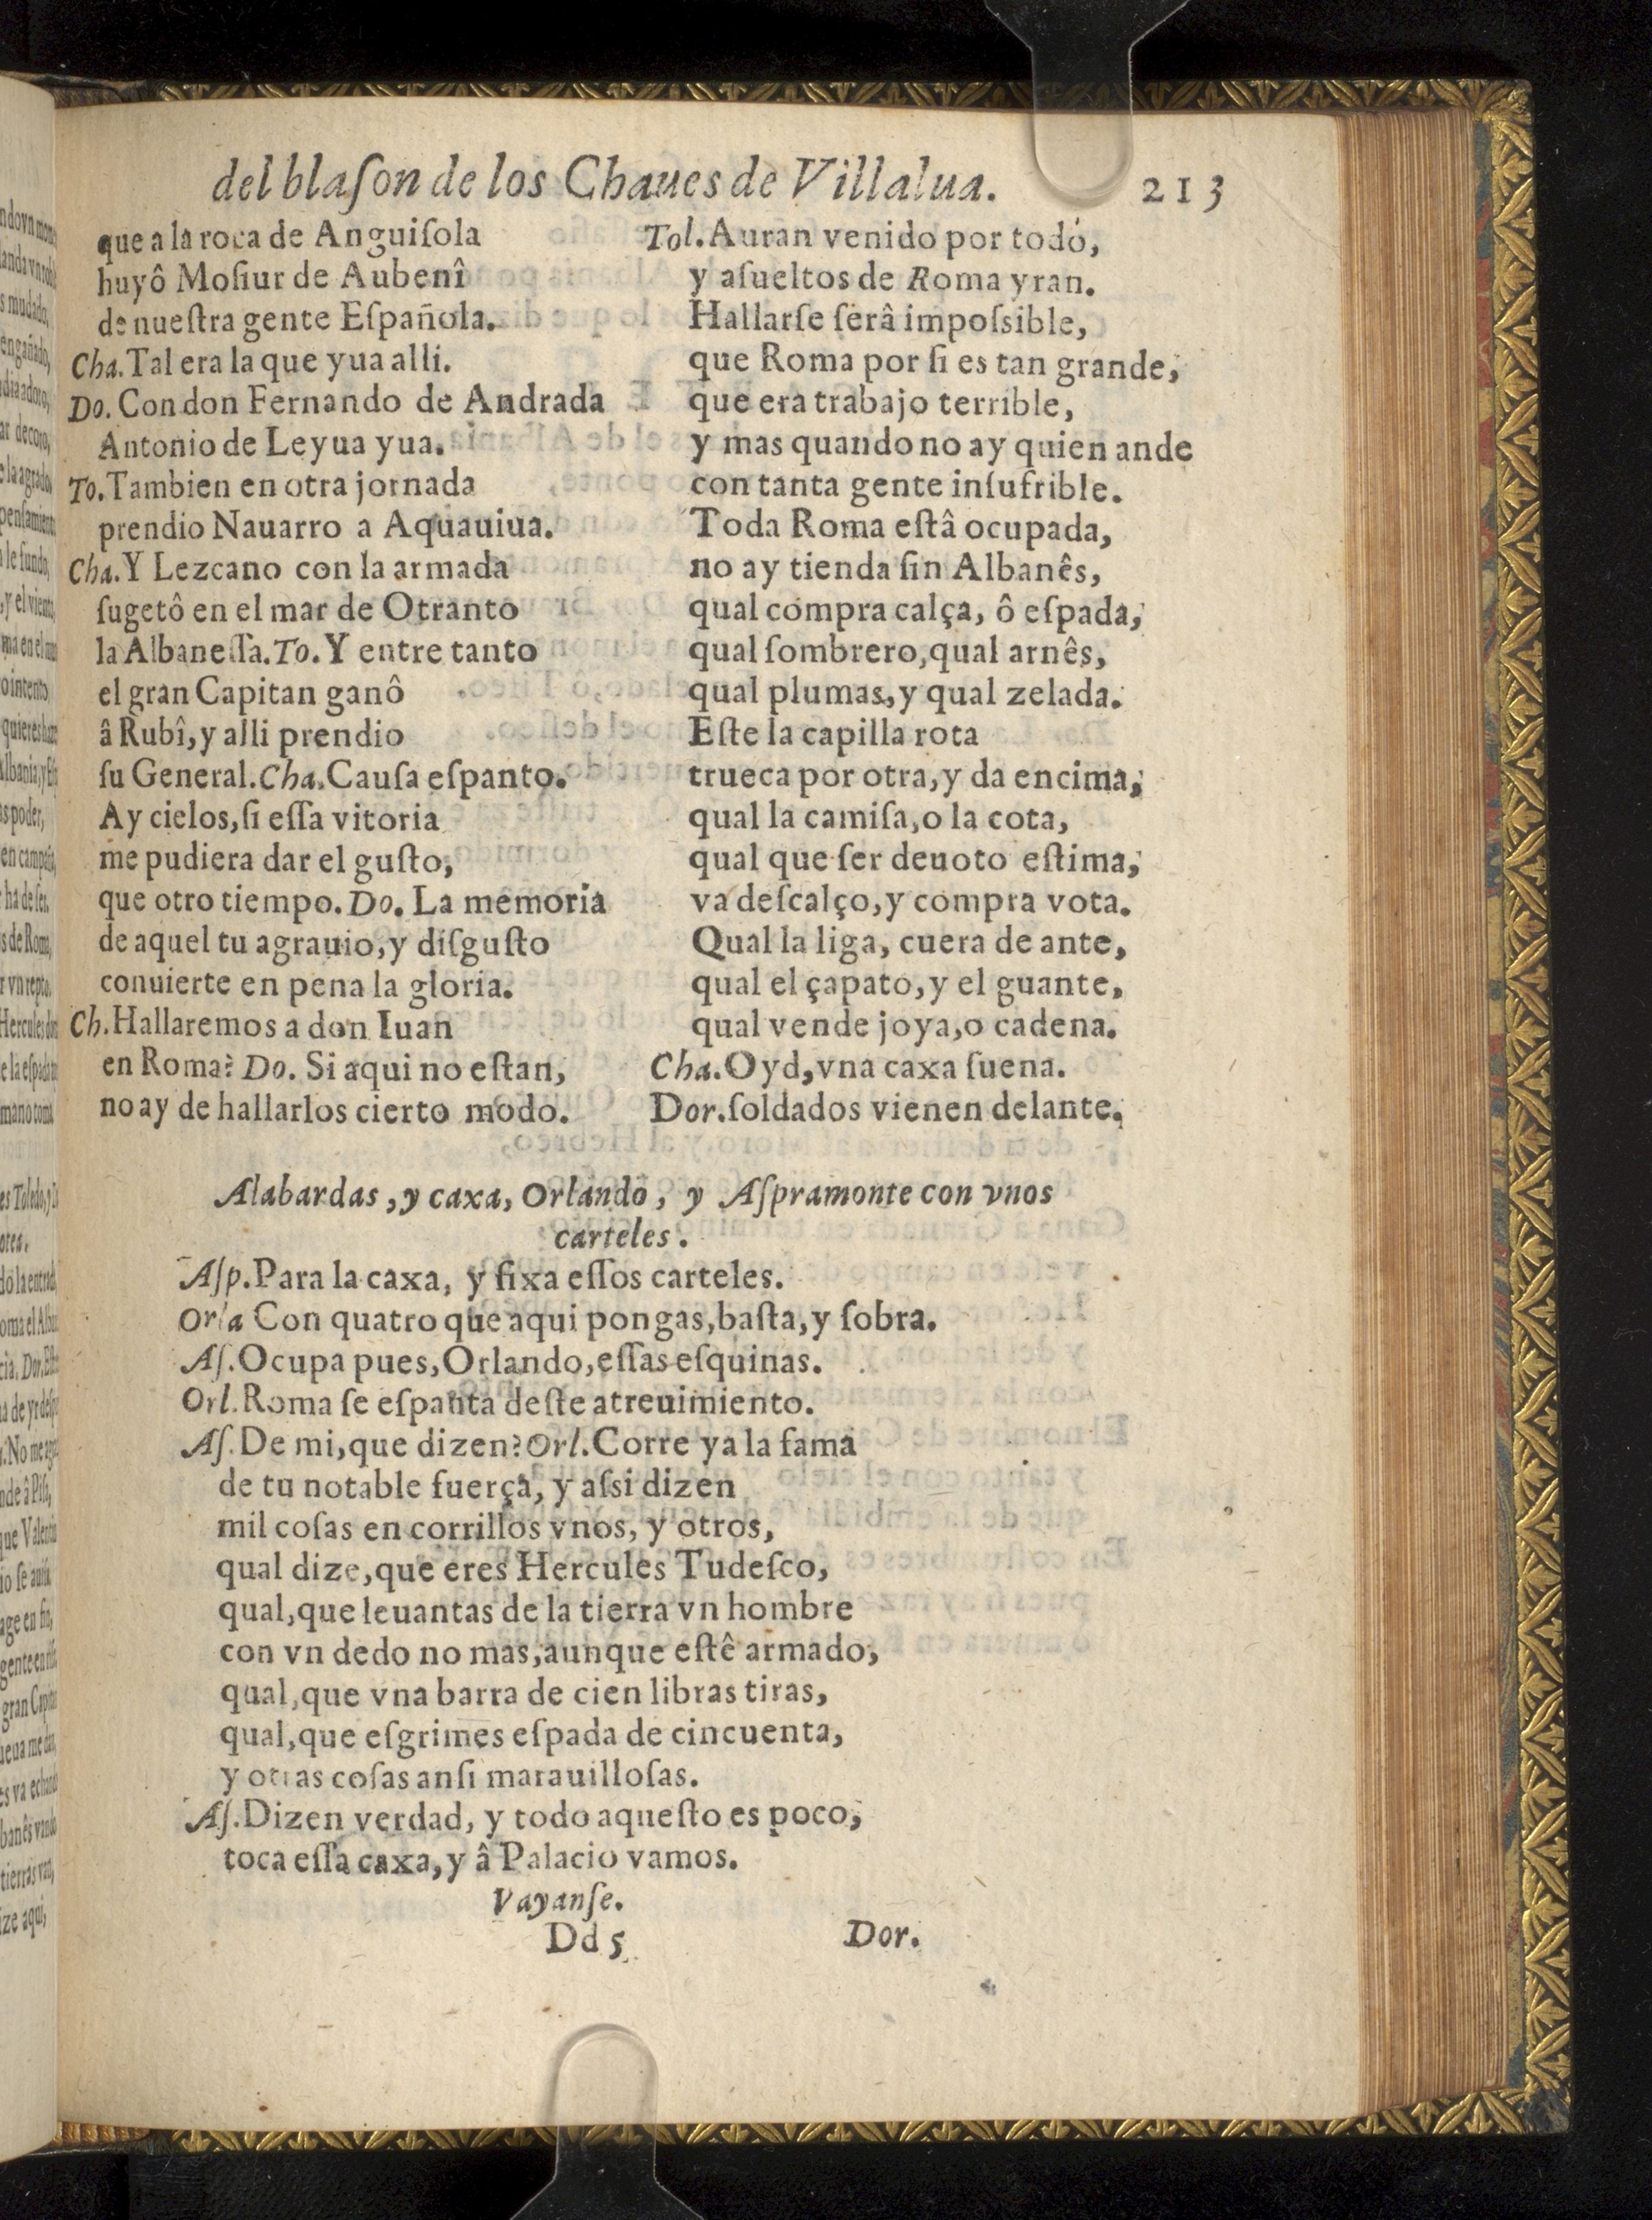 del blaſon de los Chaues de Villalua. 213
que a la roca de Anguiſola
huyô Moſiur de Aubenî
de nueſtra gente Eſpañola.
Cha. Tal era la que yua alli.
Do. Con don Fernando de Andrada
Antonio de Leyua yua.
To. Tambien en otra jornada
prendio Nauarro a Aquauiua.
Cha. Y Lezcano con la armada
ſugetô en el mar de Otranto
la Albaneſſa. To. Y entre tanto
el gran Capitan ganô
â Rubî, y alli prendio
ſu General. Cha. Cauſa eſpanto.
Ay cielos, ſi eſſa vitoria
me pudiera dar el guſto,
que otro tiempo. Do. La memoria
de aquel tu agrauio, y diſguſto
conuierte en pena la gloria.
Ch. Hallaremos a don Iuan
en Roma? Do. Si aqui no eſtan,
no ay de hallarlos cierto modo.
Tol. Auran venido por todo,
y aſueltos de Roma yran.
Hallarſe ſerâ impoſsible,
que Roma por ſi es tan grande,
que era trabajo terrible,
y mas quando no ay quien ande
con tanta gente inſufrible.
Toda Roma eſtâ ocupada,
no ay tienda ſin Albanês,
qual compra calça, ô eſpada,
qual ſombrero, qual arnês,
qual plumas, y qual zelada.
Eſte la capilla rota
trueca por otra, y da encima,
qual la camiſa, o la cota,
qual que ſer deuoto eſtima,
va deſcalço, y compra vota.
Qual la liga, cuera de ante,
qual el çapato, y el guante,
qual vende joya, o cadena.
Cha. Oyd, vna caxa ſuena.
Dor. ſoldados vienen delante.
Alabardas, y caxa, Orlando, y Aſpramonte con vnos
carteles.
Aſp. Para la caxa, y fixa eſſos carteles.
Orla Con quatro que aqui pongas, baſta, y ſobra.
Aſ. Ocupa pues, Orlando, eſſas eſquinas.
Orl. Roma ſe eſpanta deſte atreuimiento.
Aſ. De mi, que dizen? Orl. Corre ya la fama
de tu notable fuerça, y aſsi dizen
mil coſas en corrillos vnos, y otros,
qual dize, que eres Hercules Tudeſco,
qual, que leuantas de la tierra vn hombre
con vn dedo no mas, aunque eſtê armado,
qual, que vna barra de cien libras tiras,
qual, que eſgrimes eſpada de cincuenta,
y otras coſas anſi marauilloſas.
Aſ. Dizen verdad, y todo aqueſto es poco,
toca eſſa caxa, y â Palacio vamos.
Vayanſe.
Dd 5 Dor.